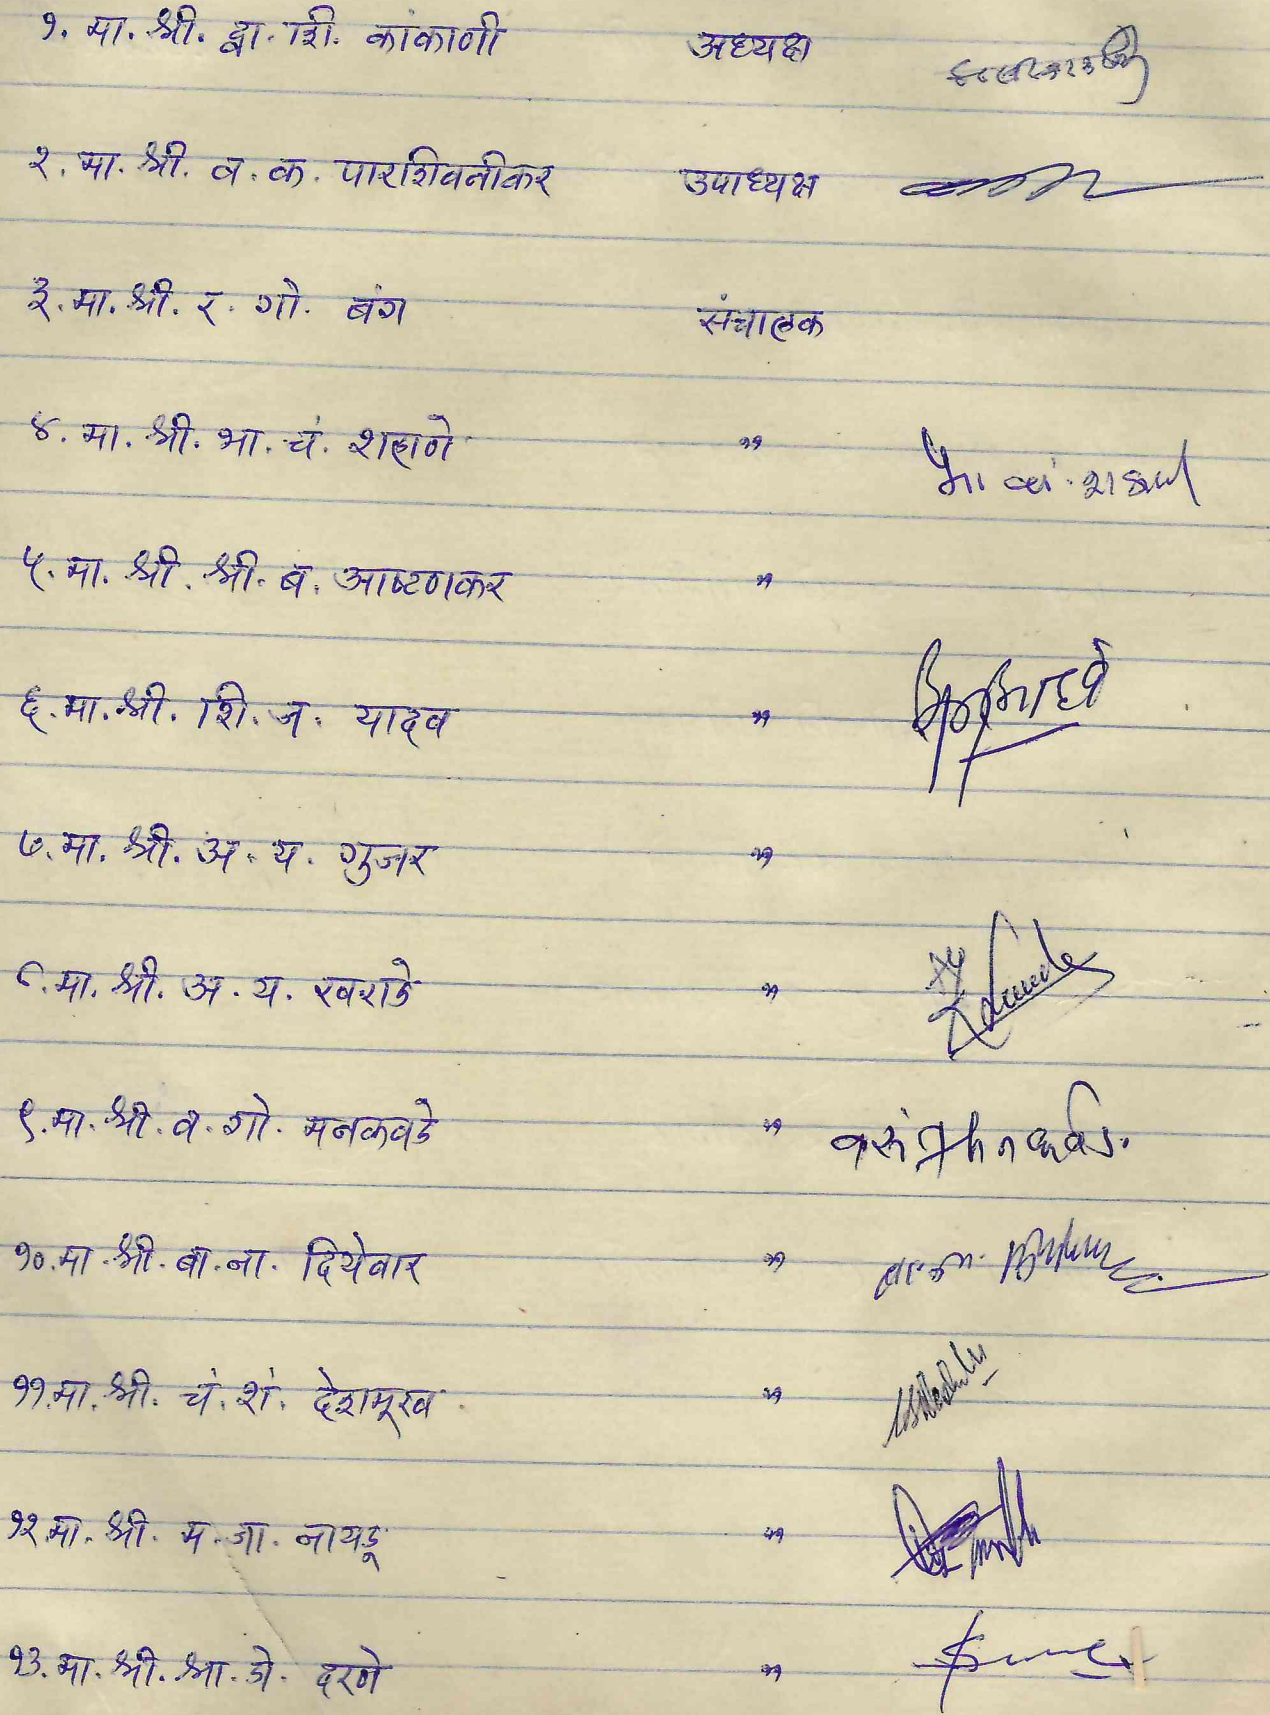 १. मा. श्री. द्वा. शि. कांकाणी अध्यक्ष
२. मा. श्री. व. क. पारशिवनीकर उपाध्यक्ष
३. मा. श्री. र. गो. बंग संचालक
४. मा. श्री. भा. चं. शहाणे "
५. मा. श्री. श्री. ब. आष्टणकर "
६. मा. श्री. शि. ज. यादव "
७. मा. श्री. अ. य. गुजर "
८. मा. श्री. अ. य. खराडे "
९. मा. श्री. व. गो. मनकवडे "
१०. मा. श्री. बा. ना. दियेवार "
११. मा. श्री. चं. शं. देशमूख "
१२. मा. श्री. म. जा. नायडू "
१३. मा. श्री. श्रा. डो. दरणे "